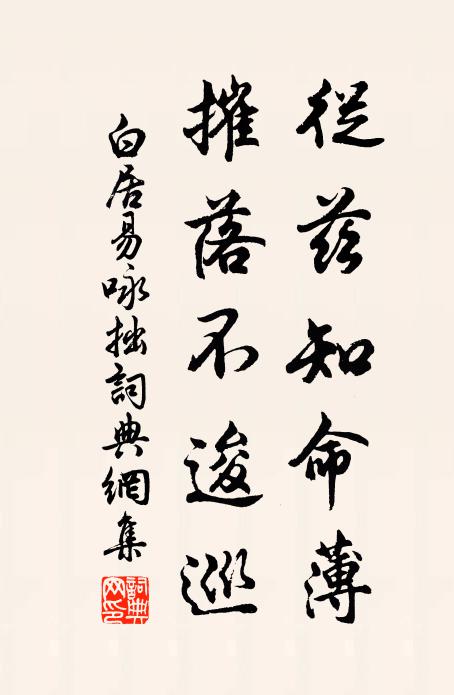 從茲知命薄
摧落不逡巡
白居易咏拙詞典網集
詞典
網